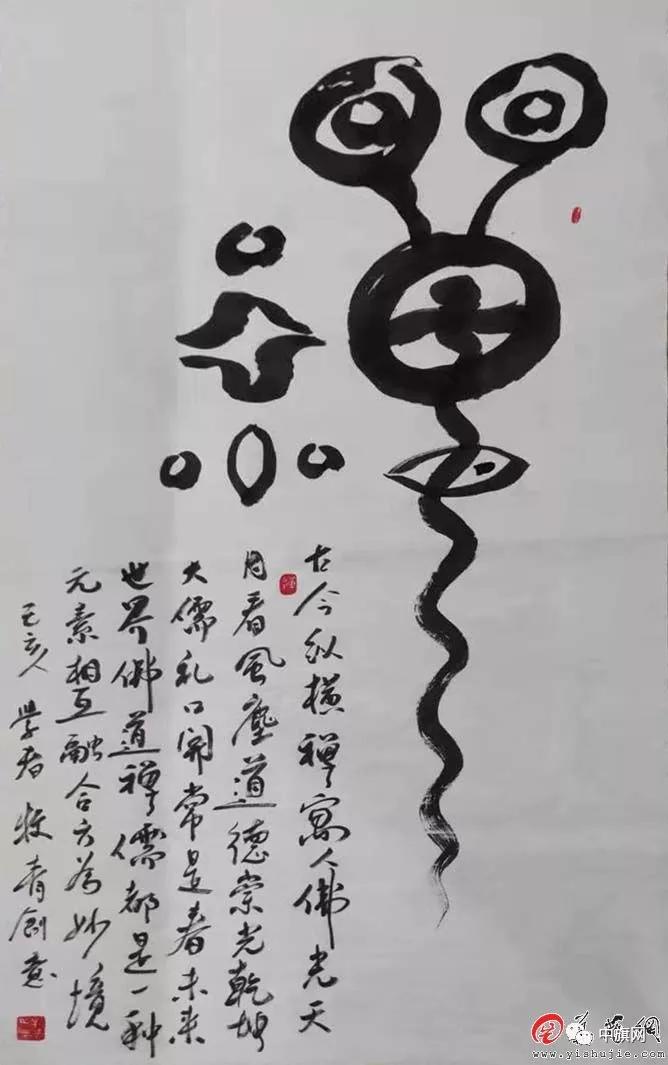 禪
古今纵横禪寓人佛光天
月看風塵道德崇光乾坤
大儒礼口開常是春未来
世界佛道禪儒都是一种
元素相互融合方为妙境
己亥 学者 牧青創意
中旗网
www.yishujie.com